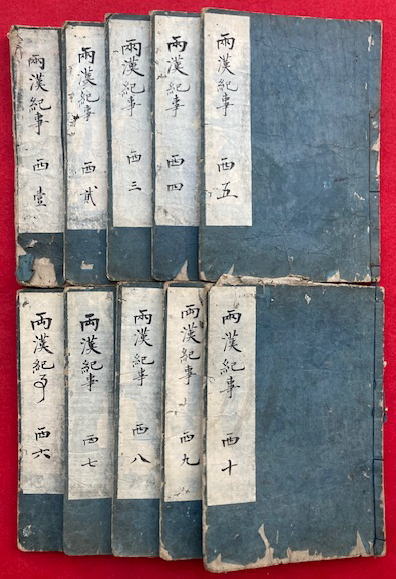 兩漢紀事 西壹
兩漢紀事 西貳
兩漢紀事 西三
兩漢紀事 西四
兩漢紀事 西五
兩漢紀事 西六
兩漢紀事 西七
兩漢紀事 西八
兩漢紀事 西九
兩漢紀事 西十